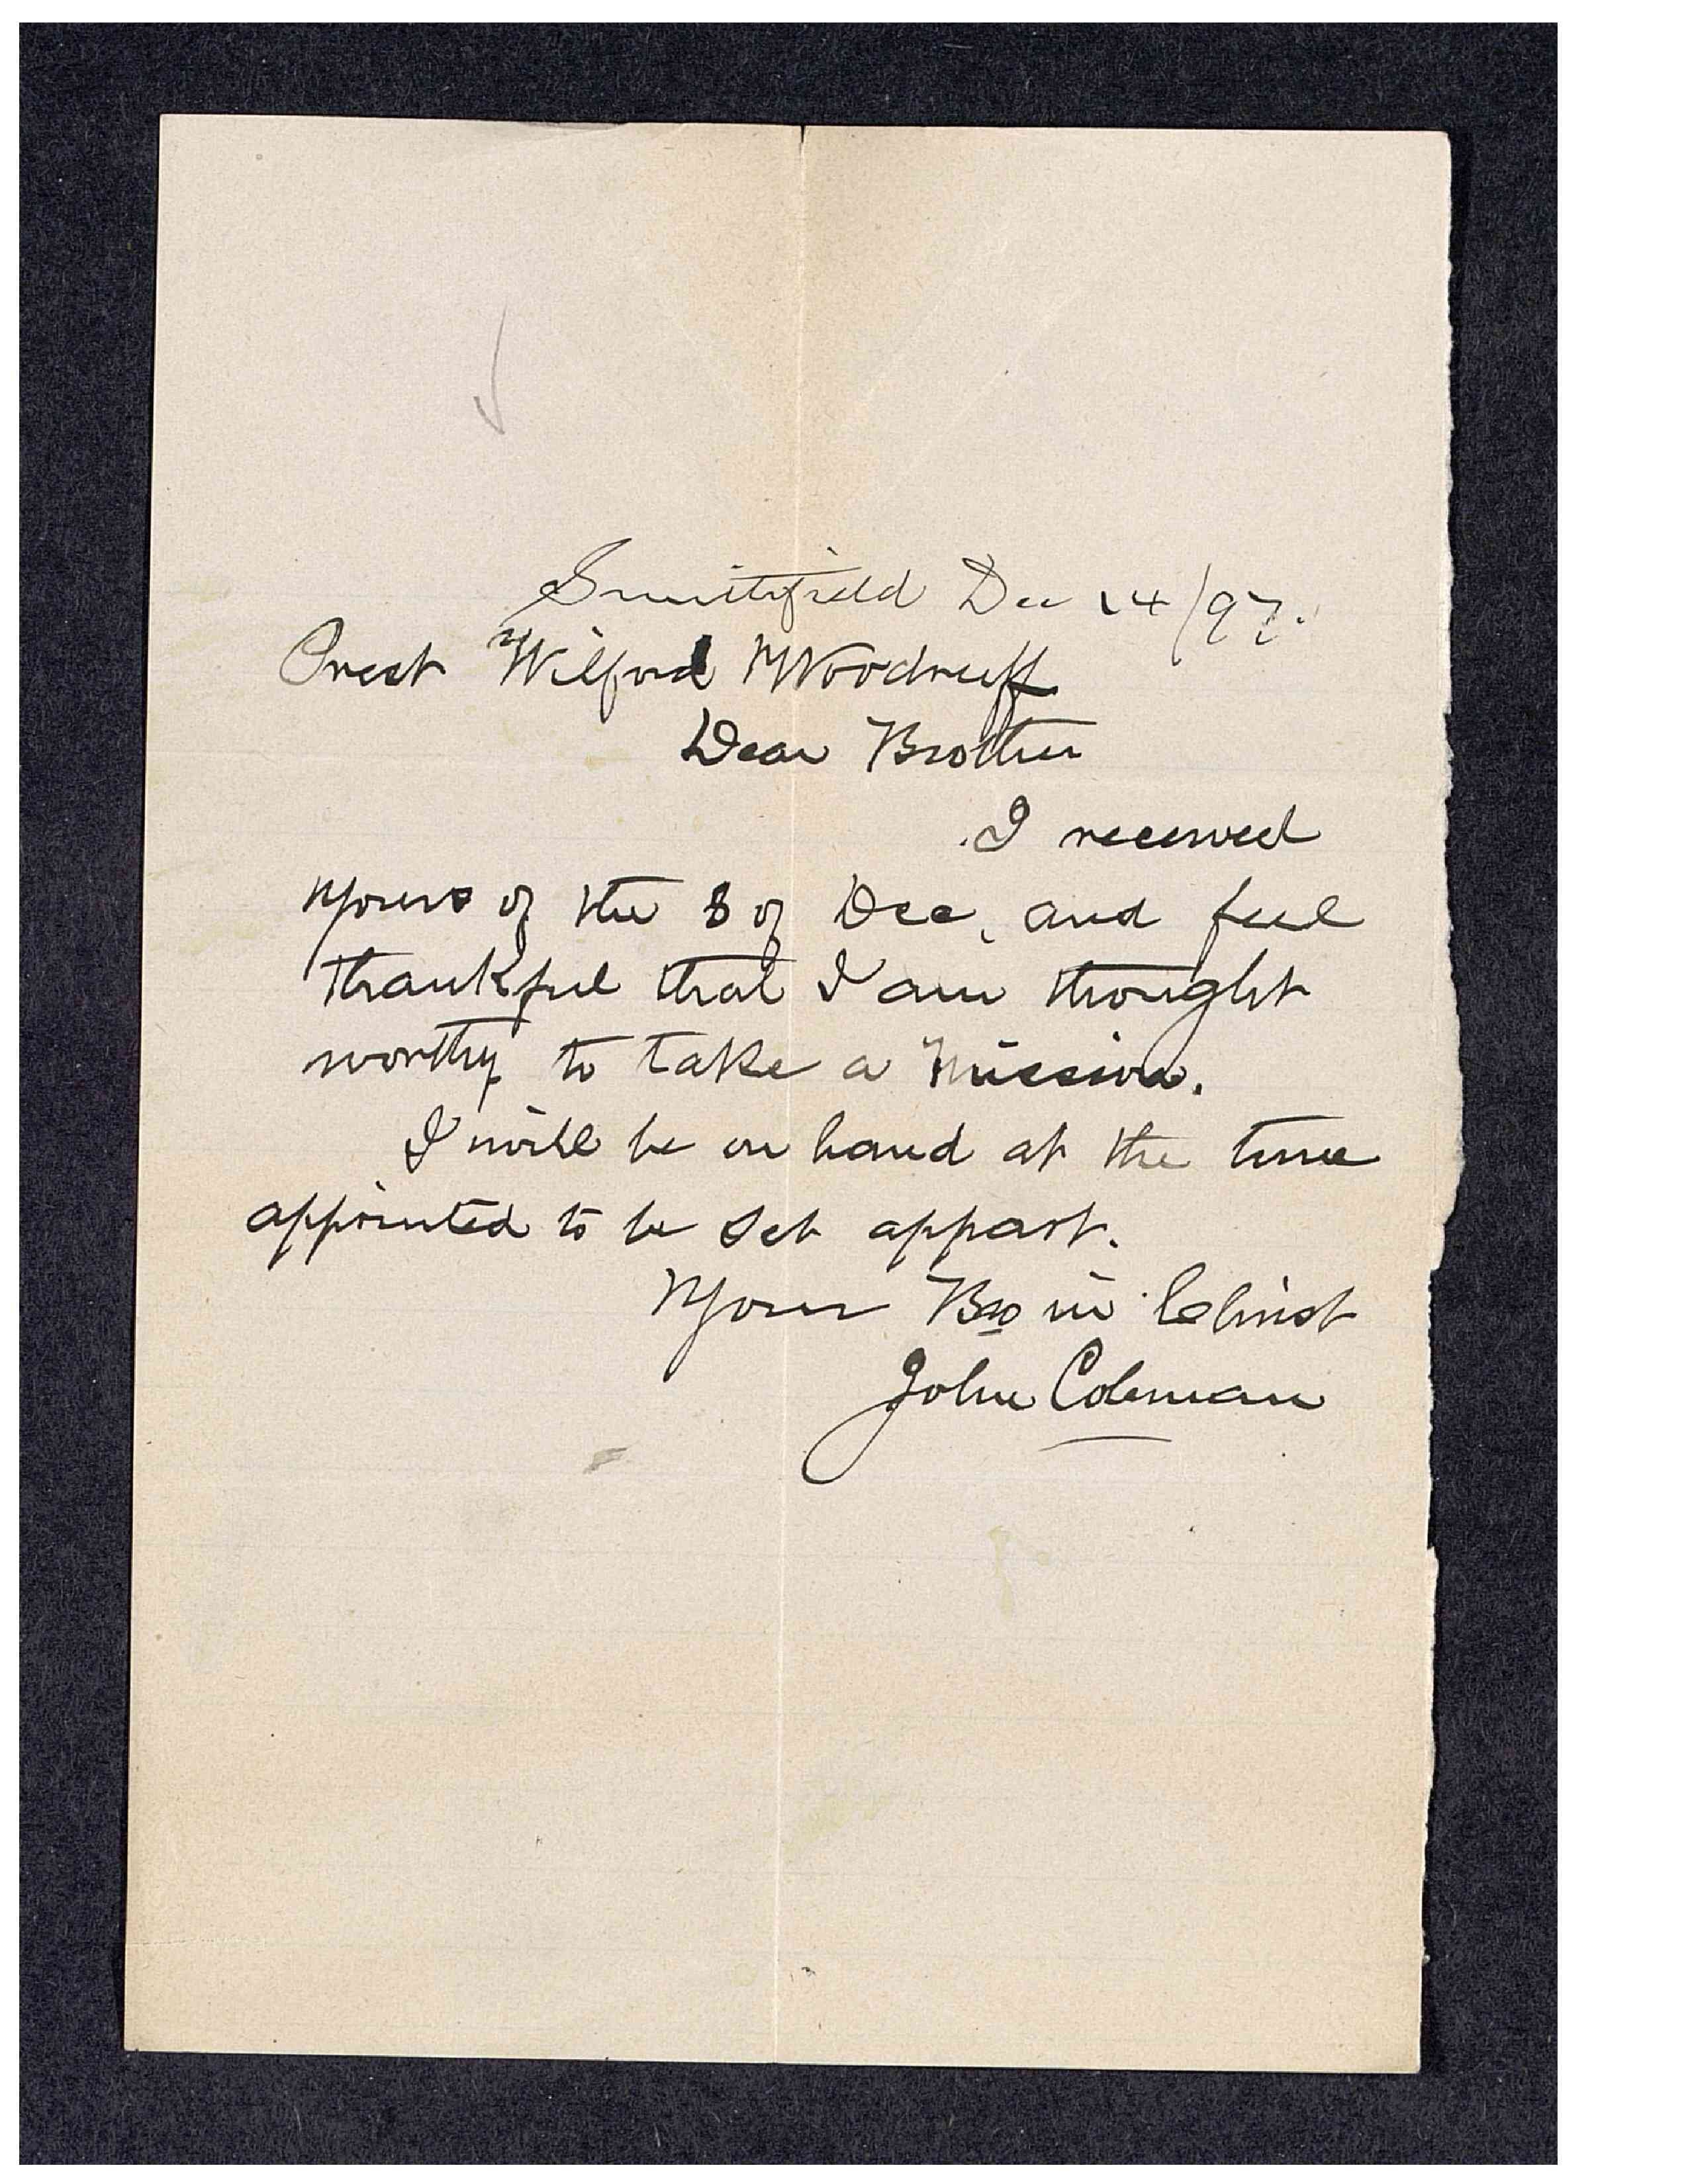 Smithfield Dec 14/97.
Prest Wilford Woodruff
Dear Brother
I received
Yours of the 8 of Dec, and feel
thankful that I am thought
worthy to take a mission.
I will be on hand at the time
appointed to be set appart.
Your Bro in Christ
John Coleman